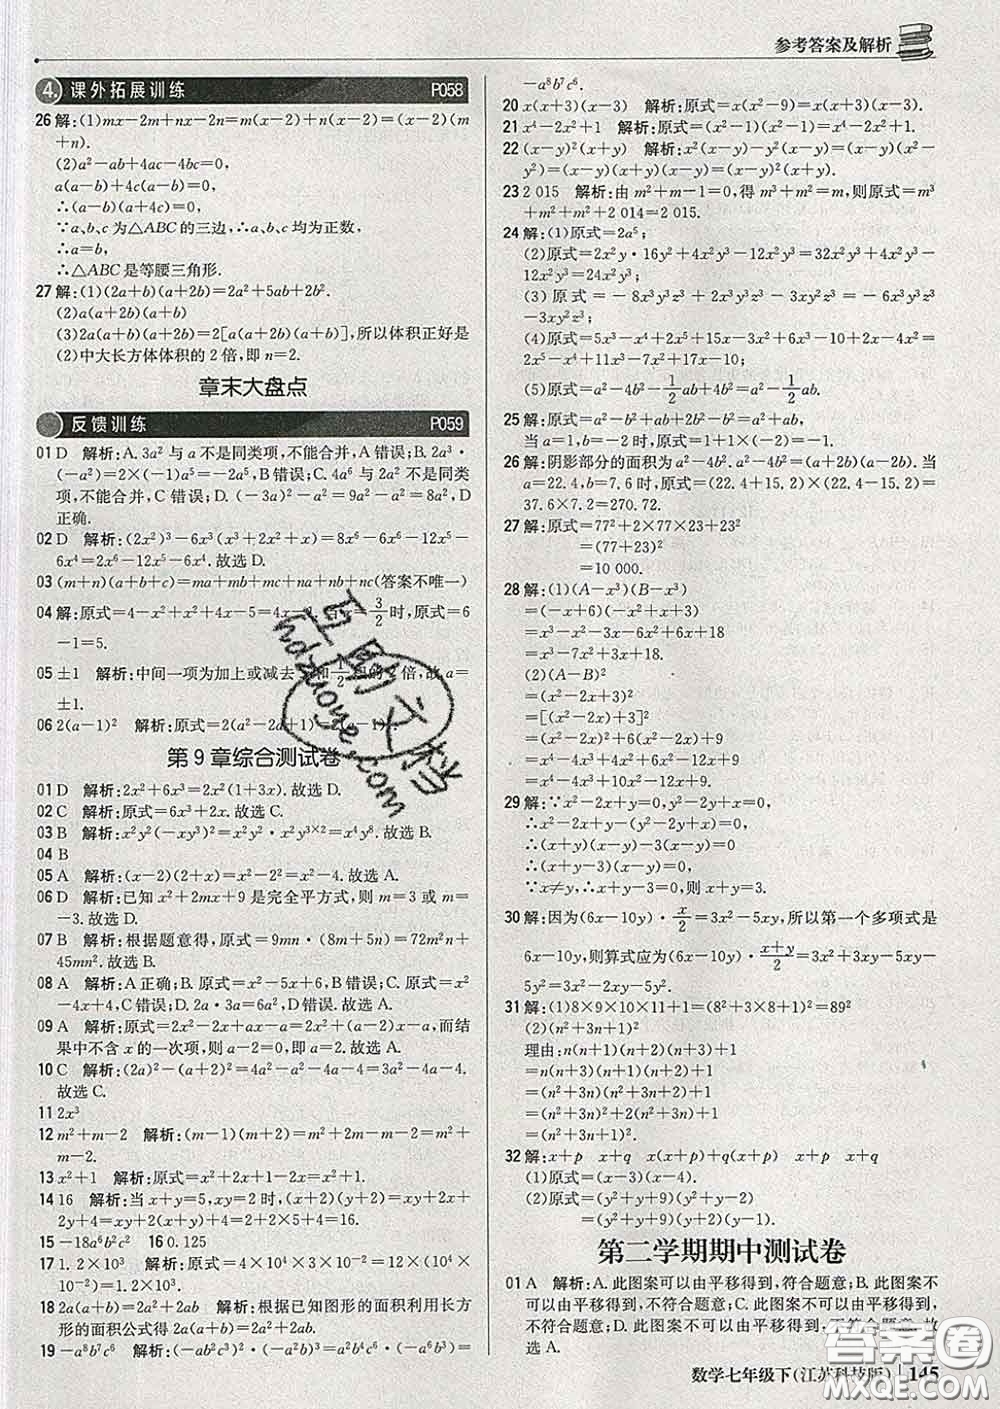 参考答案及解析
4. 课外拓展训练 P058
26 解:(1)mx－2m＋nx－2n＝m(x－2)＋n(x－2)＝(x－2)(m
＋n).
(2)a²－ab＋4ac－4bc＝0,
a(a－b)＋4c(a－b)＝0,
∴(a－b)(a＋4c)＝0,
∵a、b、c为△ABC的三边,∴a、b、c均为正数,
∴a＝b,
∴△ABC是等腰三角形.
27 解:(1)(2a＋b)(a＋2b)＝2a²＋5ab＋2b².
(2)a(a＋2b)(a＋b)
(3)2a(a＋b)(a＋2b)＝2[a(a＋2b)(a＋b)],所以体积正好是
(2)中大长方体体积的2倍,即n＝2.
章末大盘点
反馈训练 P059
01 D 解析:A. 3a²与a不是同类项,不能合并,A错误;B. 2a³·
(－a²)＝2×(－1)a⁵＝－2a⁵,B错误;C. 4a⁶与2a²不是同类
项,不能合并,C错误;D. (－3a)²－a²＝9a²－a²＝8a²,D
正确.
02 D 解析:(2x²)³－6x³(x³＋2x²＋x)＝8x⁶－6x⁶－12x⁵－
6x⁴＝2x⁶－12x⁵－6x⁴.故选D.
03 (m＋n)(a＋b＋c)＝ma＋mb＋mc＋na＋nb＋nc(答案不唯一)
04 解:原式＝4－x²＋x²＋4x－5＝4x－1,当x＝3/2时,原式＝6
－1＝5.
05 ±1 解析:中间一项为加上或减去 和1/2 的2倍,故a＝
±1.
06 2(a－1)² 解析:原式＝2(a²－2a＋1)＝2(a－1)².
第9章综合测试卷
01 D 解析:2x²＋6x³＝2x²(1＋3x).故选D.
02 C 解析:原式＝6x³＋2x.故选C.
03 B 解析:x²y²(－xy³)²＝x²y²·x²y³ˣ²＝x⁴y⁸.故选B.
04 B
05 A 解析:(x－2)(2＋x)＝x²－2²＝x²－4.故选A.
06 D 解析:已知x²＋2mx＋9是完全平方式,则m＝3或m＝
－3.故选D.
07 B 解析:根据题意得,原式＝9mn·(8m＋5n)＝72m²n＋
45mn².故选B.
08 A 解析:A正确;B. 原式＝x²－5x＋6,B错误;C. 原式＝x²
－4x＋4,C错误;D. 2a·3a＝6a²,D错误.故选A.
09 A 解析:原式＝2x²－2x＋ax－a＝2x²＋(a－2)x－a,而结
果中不含x的一次项,则a－2＝0,即a＝2.故选A.
10 C 解析:(2a)²－(a＋2)²＝4a²－a²－4a－4＝3a²－4a－4.
故选C.
11 2x³
12 m²＋m－2 解析:(m－1)(m＋2)＝m²＋2m－m－2＝m²＋m
－2.
13 x²＋1 解析:原式＝x²＋2x＋1－2x＝x²＋1.
14 16 解析:当x＋y＝5,xy＝2时,(x＋2)(y＋2)＝xy＋2x＋
2y＋4＝xy＋2(x＋y)＋4＝2＋2×5＋4＝16.
15 －18a⁶b²c² 16 0.125
17 1.2×10³ 解析:原式＝(4×10⁶)×(3×10⁷)÷10¹⁰＝12×
10¹³÷10¹⁰＝1.2×10³.
18 2a(a＋b)＝2a²＋2ab 解析:根据已知图形的面积利用长方
形的面积公式得2a(a＋b)＝2a²＋2ab.
19 －a⁸b⁷c⁶ 解析:(－abc²)³·(－a²b²)²·(－ab)＝
－a⁸b⁷c⁶.
20 x(x＋3)(x－3) 解析:原式＝x(x²－9)＝x(x＋3)(x－3).
21 x⁴－2x²＋1 解析:原式＝(x²－1)(x²－1)＝x⁴－2x²＋1.
22 (x－y)²(x＋y) 解析:x²(x－y)－y²(x－y)＝(x－y)(x²－
y²)＝(x－y)(x＋y)(x－y)＝(x－y)²(x＋y).
23 2 015 解析:由m²＋m－1＝0,得m³＋m²＝m,则原式＝m³
＋m²＋m²＋2 014＝2 015.
24 解:(1)原式＝2a⁵;
(2)原式＝2x²y·16y²＋4x²·2xy³－12x²y³＝32x²y³＋4x²y³－
12x²y³＝24x²y³;
(3)原式＝－8x³y³z³＋2x³y³z³－3xy²z³＝－6x³y³z³
－3xy²z³;
(4)原式＝5x³－x⁴＋2x⁵＋15x－3x²＋6x³－10x²＋2x³－4x⁴＝
2x⁵－5x⁴＋11x³－7x²＋10x²－17x;
(5)原式＝a²－4b²－1/2ab＋4b²＝a²－1/2ab.
25 解:原式＝a²－b²＋ab＋2b²－b²＝a²＋ab.
当a＝1,b＝－2时,原式＝1＋1×(－2)＝－1.
26 解:阴影部分的面积为a²－4b².a²－4b²＝(a＋2b)(a－2b).当
a＝22.4,b＝7.6时,原式＝(22.4＋15.2)×(22.4－15.2)＝
37.6×7.2＝270.72.
27 解:原式＝77²＋2×77×23＋23²
＝(77＋23)²
＝10 000.
28 解:(1)(A－x³)(B－x³)
＝(－x＋6)(－x²＋x＋3)
＝x³－x²－3x－6x²＋6x＋18
＝x³－7x²＋3x＋18
(2)(A－B)²
＝(x²－2x＋3)²
＝[(x²－2x)＋3]²
＝(x²－2x)²＋6(x²－2x)＋9
＝x⁴－4x³＋4x²＋6x²－12x＋9
＝x⁴－4x³＋10x²－12x＋9
29 解:∵x²－2x＋y＝0,y²－2y＋x＝0,
∴x²－2x－y²＋2y－x＋y＝0,
∴(x＋y)(x－y)－3(x－y)＝0
∴(x＋y－3)(x－y)＝0
∵x≠y,∴x＋y－3＝0,则x＋y＝3.
30 解:因为(6x－10y)·x/2＝3x²－5xy,所以第一个多项式是
6x－10y,则算式应为(6x－10y)·(x＋y)/2＝3x²＋3xy－5xy－
5y²＝3x²－2xy－5y².
31 解:(1)8×9×10×11＋1＝(8²＋3×8＋1)²＝89²
(2)(n²＋3n＋1)²
理由:n(n＋1)(n＋2)(n＋3)＋1
＝n(n＋3)(n＋1)(n＋2)＋1
＝(n²＋3n)(n²＋3n＋2)＋1
＝(n²＋3n)²＋2(n²＋3n)＋1
＝(n²＋3n＋1)².
32 解:x＋p x＋q x(x＋p)＋q(x＋p) x＋p x＋q
(1)原式＝(x－3)(x－4).
(2)原式＝(y²＋y＋9)(y²＋y－2)
＝(y²＋y＋9)(y＋2)(y－1).
第二学期期中测试卷
01 A 解析:A. 此图案可以由平移得到,符合题意;B. 此图案不
可以由平移得到,不符合题意;C. 此图案不可以由平移得到,
不符合题意;D. 此图案不可以由平移得到,不符合题意.故
选A.
数学七年级下(江苏科技版) 145
答案圈
互助文档
hdzuoye.com